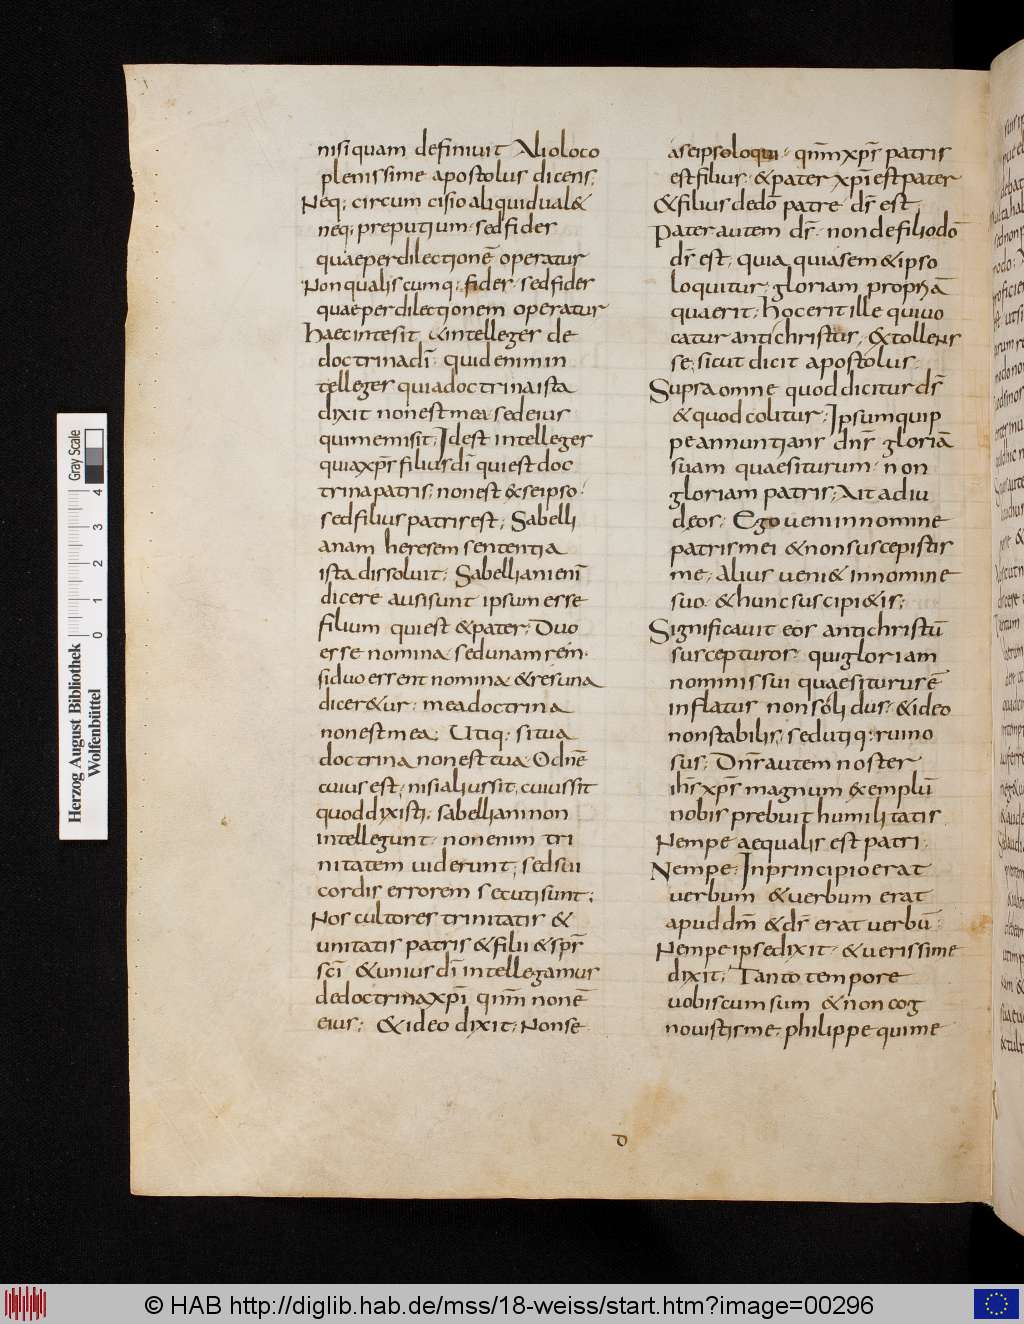 nisi quam definiuit Alio loco
plenissime apostolus dicens;
Neq; circumcisio aliquid ual&
neq; preputium· sed fides
quae per dilectionē operatur
Non qualiscumq; fides· sed fides
quae per dilectionem operatur
haec inte sit, & intelleges de
doctrina dī· quid enim in
telleges quia doctrina ista
dixit non est mea sed eius
qui me misit; Id est intelleges
quia xp̄s filius dī qui est doc
trina patris; non est & seipso·
sed filius patris est; Sabelli
anam heresem sententia
ista dissoluit; Sabelliani enī
dicere ausi sunt ipsum esse
filium qui est & pater; Duo
esse nomina sed unam rem·
si duo essent nomina & res una
dicer&ur· mea doctrina
non est mea; Utiq; si tua
doctrina non est tua O dn̄e
cuius est; nisi alius sit, cuius sit
quod dixisti; sabelliani non
intellegunt· non enim tri
nitatem uiderunt; sed sui
cordis errorem secuti sunt;
Nos cultores trinitatis &
unitatis patris & filii & sp̄s
sc̄i & unius dī intellegamus
de doctrina xp̄i qn̄m non ē
eius; & ideo dixit; Non se
a se ipso loqui· qn̄m xp̄s patris
est filius· & pater xp̄i est pater
& filius de dō patre ds̄ est
Pater autem ds̄· non de filio dō
ds̄ est; quia qui a sem&ipso
loquitur; gloriam propriā
quaerit; hoc erit ille qui uo
catur antichristus, & tollens
se; sicut dicit apostolus·
Supra omne quod dicitur ds̄
& quod colitur; Ipsum quip
pe annuntians dn̄s gloriā
suam quaesiturum· non
gloriam patris; Ait ad iu
deos; Ego ueni in nomine
patris mei & non suscepistis
me; Alius ueni& in nomine
suo· & hunc suscipi&is;
Significauit eos antichristū
suscepturos· qui gloriam
nominis sui quaesiturus ē
inflatus non soli dus· & ideo
non stabilis; sed utiq; ruino
sus; Dn̄s autem noster
ih̄s xp̄s magnum exemplū
nobis prebuit humilitatis
Nempe aequalis est patri·
Nempe; In principio erat
uerbum & uerbum erat
apud dm̄ & ds̄ erat uerbū·
Nempe ipse dixit· & uerissime
dixit; Tanto tempore
uobiscum sum & non cog
nouistis me; philippe qui me
D
Herzog August Bibliothek
Wolfenbüttel
Gray Scale
0 1 2 3 4
© HAB http://diglib.hab.de/mss/18-weiss/start.htm?image=00296